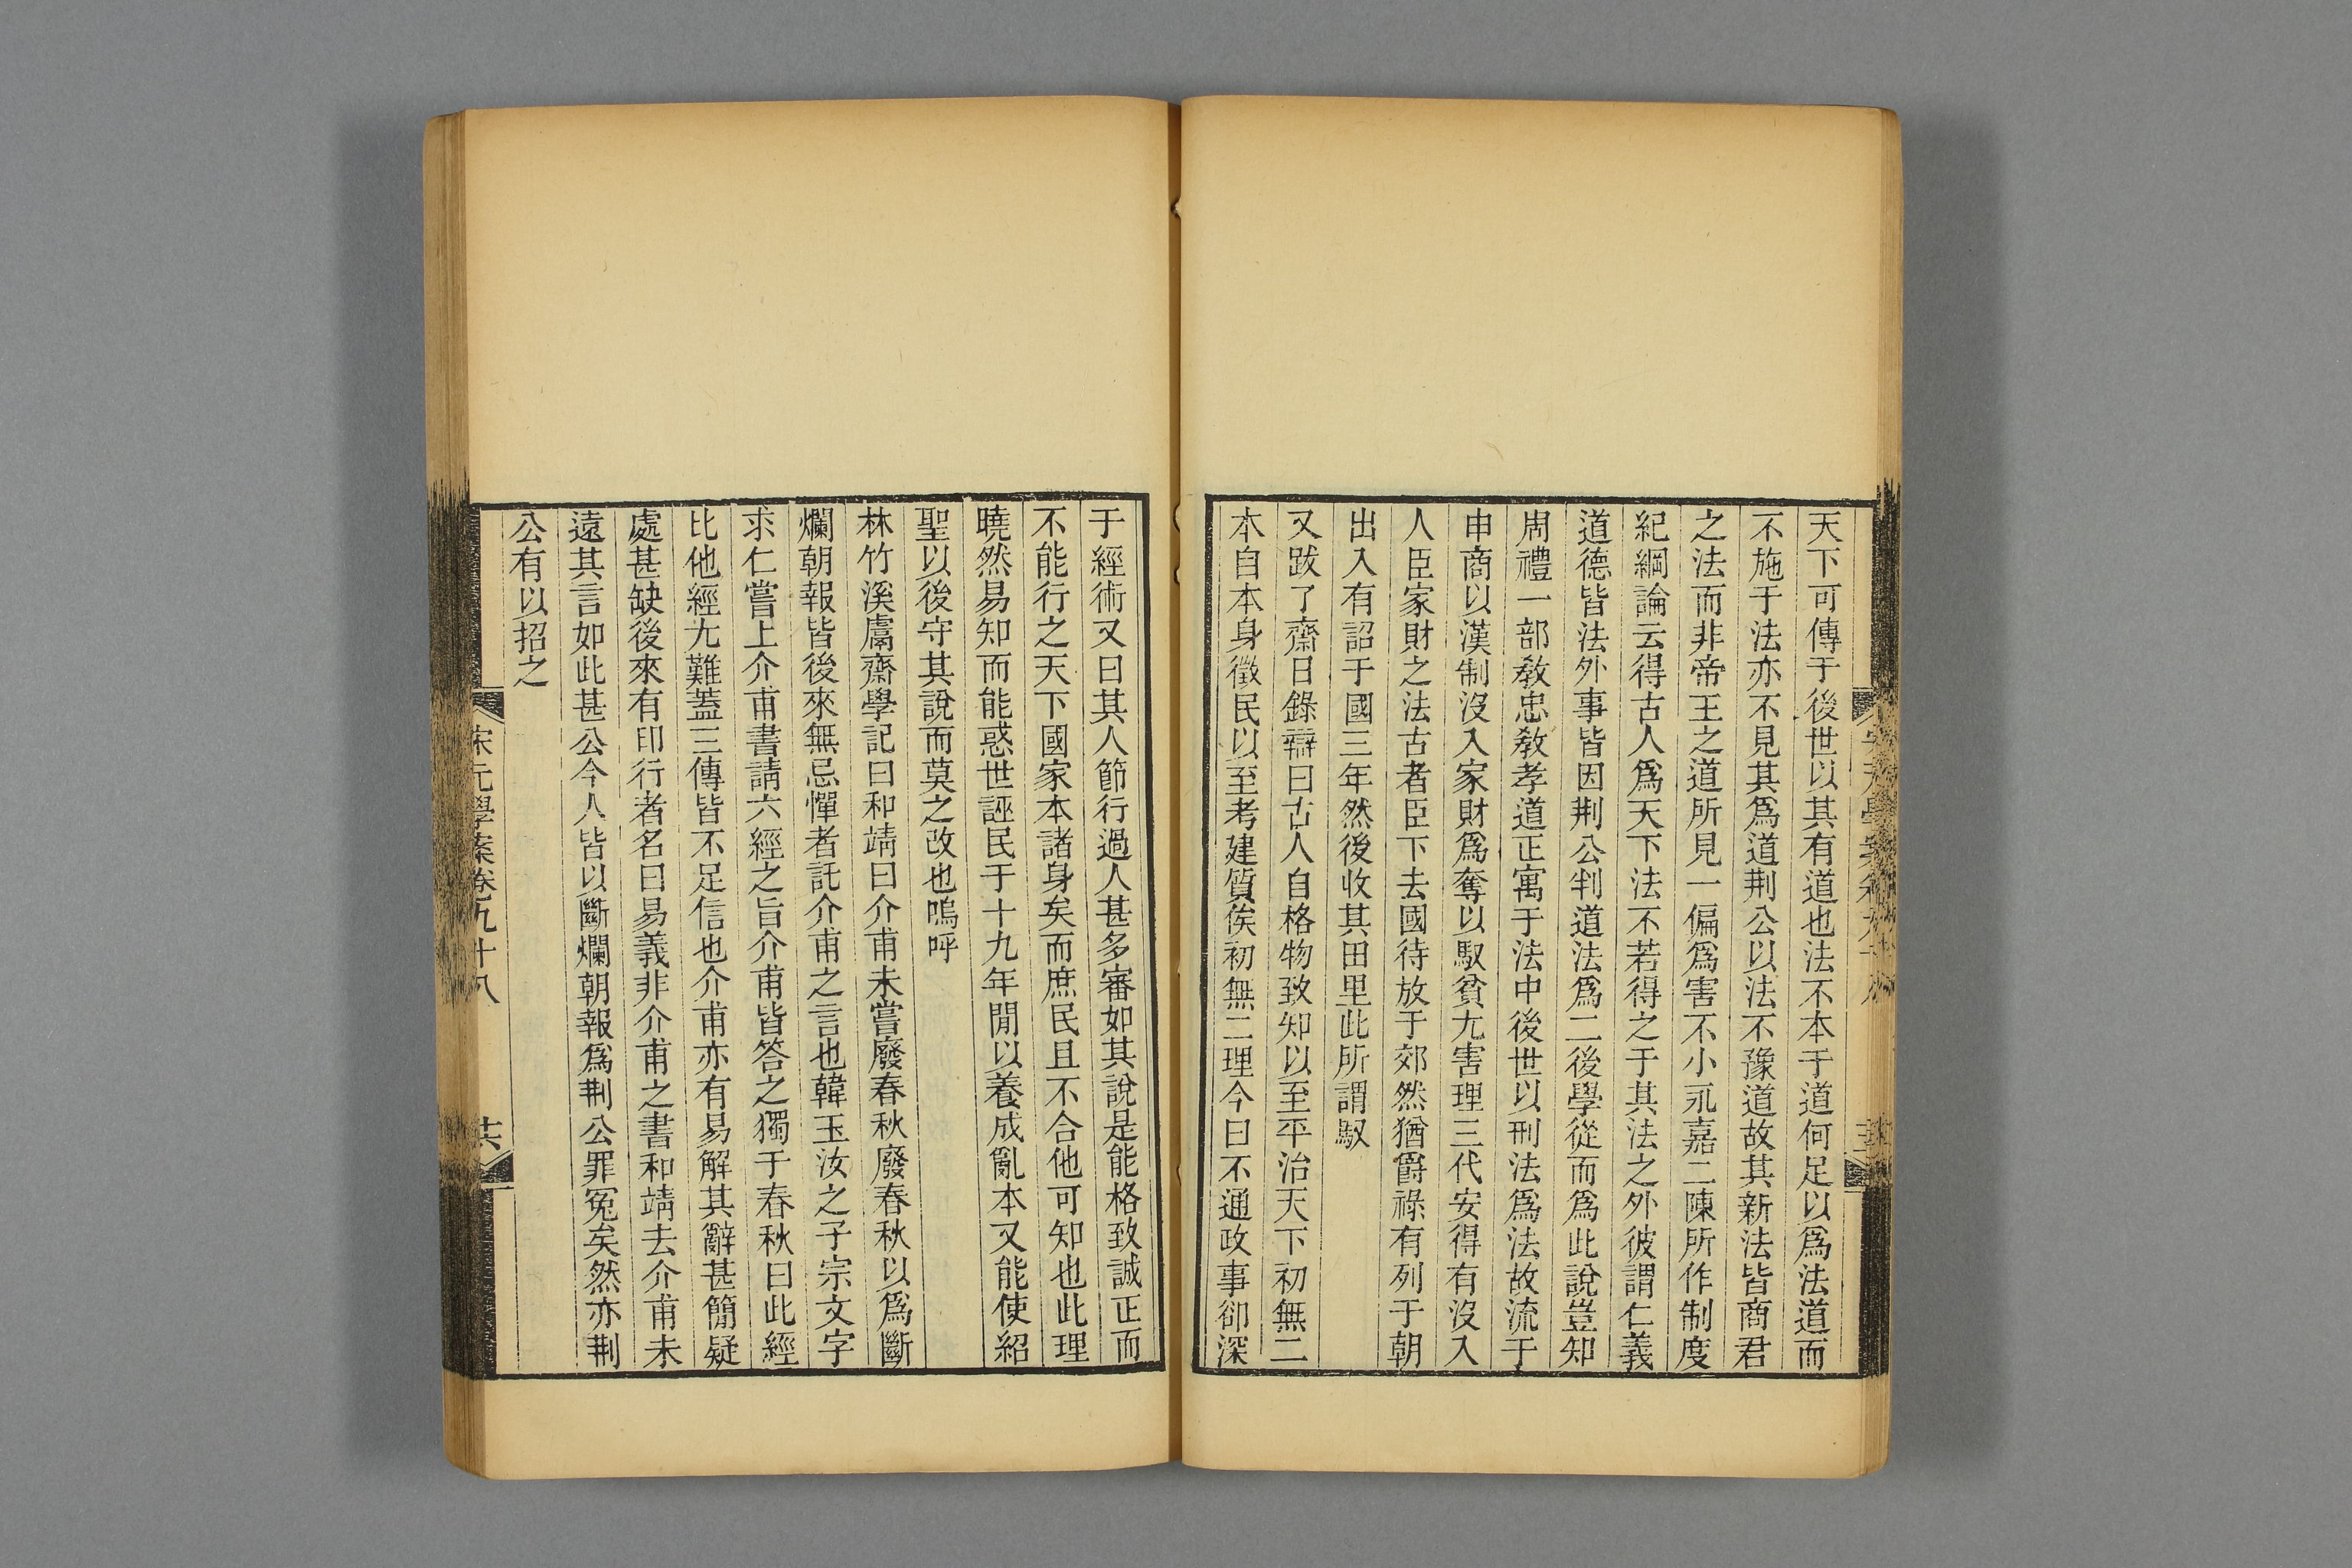 天下可傳于後世以其有道也法不本于道何足以爲法道而
不施于法亦不見其爲道荆公以法不豫道故其新法皆商君
之法而非帝王之道所見一偏爲害不小永嘉二陳所作制度
紀綱論云得古人爲天下法不若得之于其法之外彼謂仁義
道德皆法外事皆因荆公判道法爲二後學從而爲此說豈知
周禮一部敎忠敎孝道正寓于法中後世以刑法爲法故流于
申商以漢制沒入家財爲奪以馭貧尢害理三代安得有沒入
人臣家財之法古者臣下去國待放于郊然猶爵祿有列于朝
出入有詔于國三年然後收其田里此所謂馭
又跋了齋日錄辯曰古人自格物致知以至平治天下初無二
本自本身徵民以至考建質俟初無二理今曰不通政事卻深
于經術又曰其人節行過人甚多審如其說是能格致誠正而
不能行之天下國家本諸身矣而庶民且不合他可知也此理
曉然易知而能惑世誣民于十九年閒以養成亂本又能使紹
聖以後守其說而莫之改也嗚呼
林竹溪鬳齋學記曰和靖曰介甫未嘗廢春秋廢春秋以爲斷
爛朝報皆後來無忌憚者託介甫之言也韓玉汝之子宗文字
求仁嘗上介甫書請六經之旨介甫皆答之獨于春秋曰此經
比他經尢難蓋三傳皆不足信也介甫亦有易解其辭甚簡疑
處甚缺後來有印行者名曰易義非介甫之書和靖去介甫未
遠其言如此甚公今人皆以斷爛朝報爲荆公罪冤矣然亦荆
公有以招之
宋元學案卷九十八